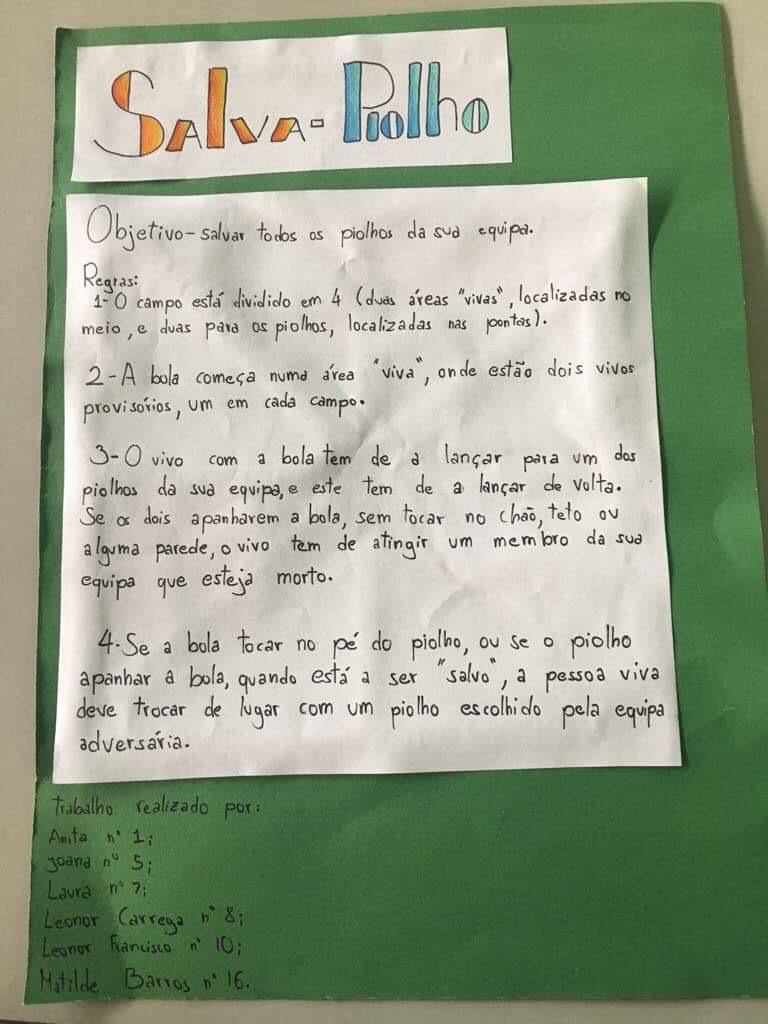 Salva-Piolho
Objetivo-salvar todos os piolhos da sua equipa.
Regras:
1-O campo está dividido em 4 (duas áreas "vivas", localizadas no
meio, e duas para os piolhos, localizadas nas pontas).
2-A bola começa numa área "viva", onde estão dois vivos
provisórios, um em cada campo.
3-O vivo com a bola tem de a lançar para um dos
piolhos da sua equipa, e este tem de a lançar de volta.
Se os dois apanharem a bola, sem tocar no chão, teto ou
alguma parede, o vivo tem de atingir um membro da sua
equipa que esteja morto.
4-Se a bola tocar no pé do piolho, ou se o piolho
apanhar a bola, quando está a ser "salvo", a pessoa viva
deve trocar de lugar com um piolho escolhido pela equipa
adversária.
trabalho realizado por:
Anita nº 1;
Joana nº 5;
Laura nº 7;
Leonor Carrega nº 8;
Leonor Francisco nº 10;
Matilde Barros nº 16.